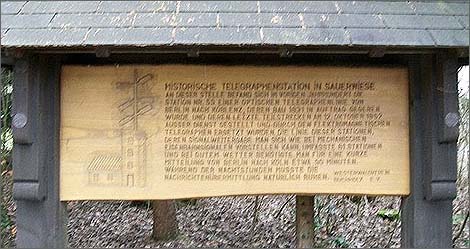 HISTORISCHE TELEGRAPHENSTATION IN SAUERWIESE
AN DIESER STELLE BEFAND SICH IM VORIGEN JAHRHUNDERT DIE
STATION NR. 55 EINER OPTISCHEN TELEGRAPHENLINIE VON
BERLIN NACH KOBLENZ, DEREN BAU 1831 IN AUFTRAG GEGEBEN
WURDE UND DEREN LETZTE TEILSTRECKEN AM 12. OKTOBER 1852
AUSSER DIENST GESTELLT UND DURCH DEN ELEKTROMAGNETISCHEN
TELEGRAPHEN ERSETZT WURDEN. DIE LINIE DIESER STATIONEN,
DEREN SIGNALWEITERGABE MAN SICH WIE BEI MECHANISCHEN
EISENBAHNSIGNALEN VORSTELLEN KANN, UMFASSTE 61 STATIONEN
UND BEI GUTEM WETTER BENÖTIGTE MAN FÜR EINE KURZE
MITTEILUNG VON BERLIN NACH KÖLN ETWA 30 MINUTEN.
WÄHREND DER NACHTSTUNDEN MUSSTE DIE
NACHRICHTENÜBERMITTLUNG NATÜRLICH RUHEN.
WESTERWALDVEREIN
BUCHHOLZ E.V.